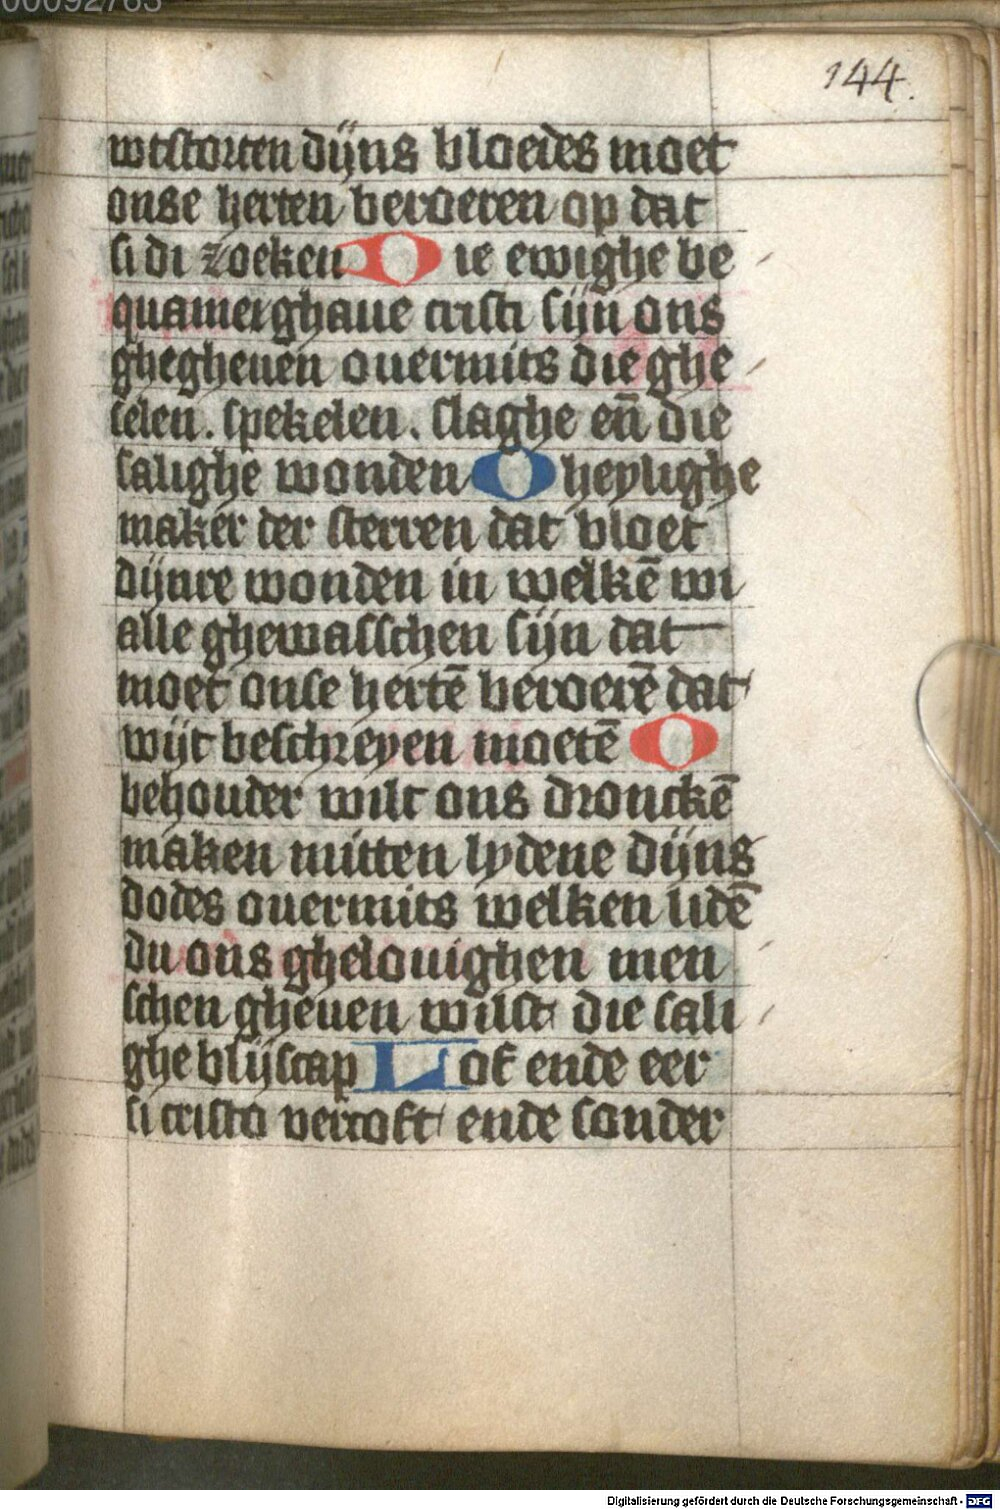 00092763
144.
wtstorten dijns bloedes moet
onse herten beroeren op dat
si di zoeken O ie ewighe be
quamer ghaue cristi sijn ons
ghegheuen ouermits die ghe
selen . spekelen . slaghe en̄ die
salighe wonden O heylighe
maker der sterren dat bloet
dijnre wonden in welkē wi
alle ghewasschen sijn dat
moet onse hertē beroerē dat
wijt beschreyen moetē O
behouder wilt ons dronckē
maken mitten lydene dijns
dodes ouermits welken lidē
du ons ghelouighen men
schen gheuen wilst die sali
ghe blijscap Lof ende eer
si cristo vercoft ende sonder
Digitalisierung gefördert durch die Deutsche Forschungsgemeinschaft - DFG